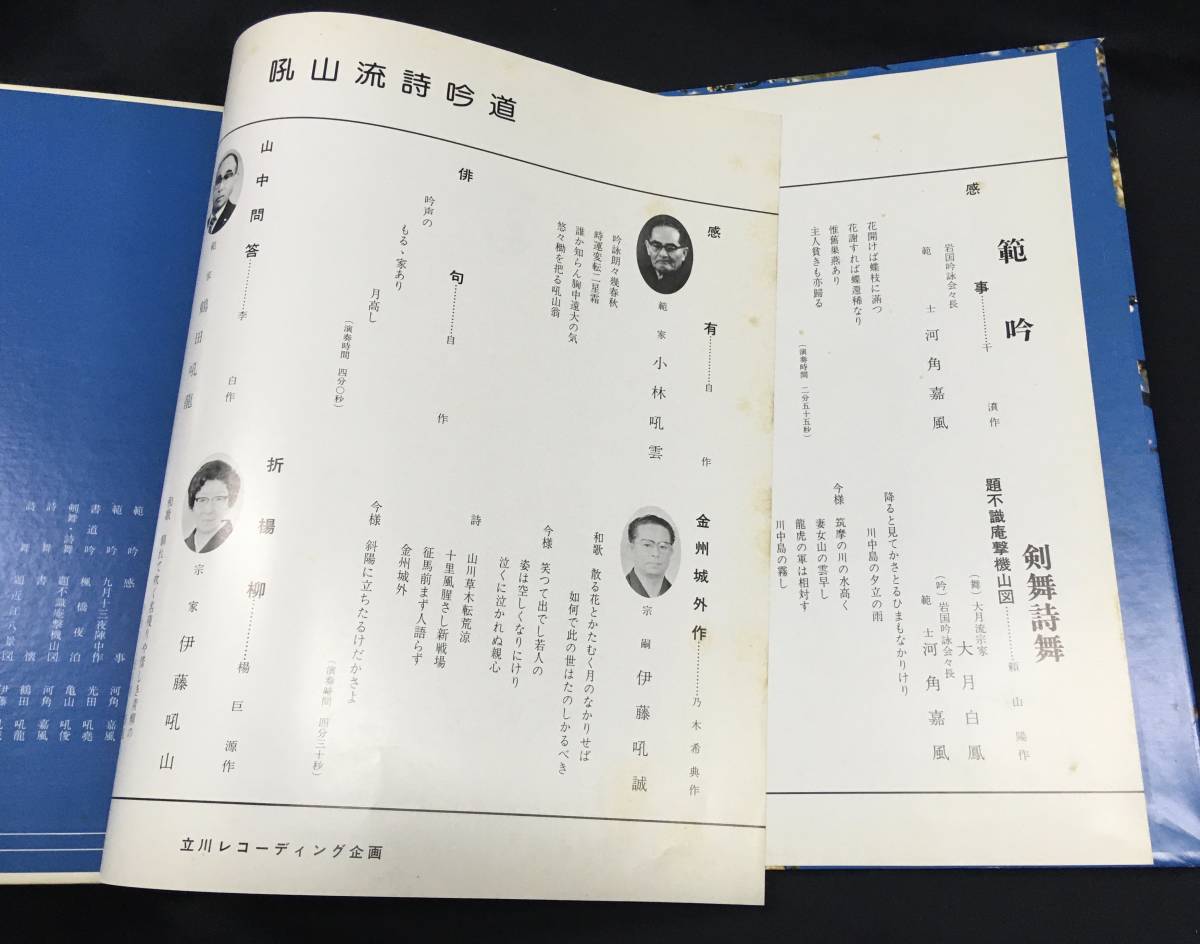 範吟
感事………于濆作
岩国吟詠会々長
範士 河角嘉風
花開けば蝶枝に満つ
花謝すれば蝶還稀なり
惟舊巣燕あり
主人貧きも亦歸る
（演奏時間 二分五十五秒）
剣舞詩舞
題不識庵撃機山図………頼山陽作
（舞）大月流宗家 大月白鳳
（吟）岩国吟詠会々長
範士 河角嘉風
降ると見てかさとるひまもなかりけり
川中島の夕立の雨
今様 筑摩の川の水高く
妻女山の雲早し
龍虎の軍は相対す
川中島の霧し
吼山流詩吟道
感有………自作
範家 小林吼雲
吟詠朗々幾春秋
時運変転二星霜
誰か知らん胸中遠大の気
悠々櫛を把る吼山翁
俳句………自作
吟声の
もるゝ家あり
月高し
（演奏時間 四分〇秒）
山中問答………李白作
範家 鶴田吼龍
金州城外作………乃木希典作
宗嗣 伊藤吼誠
和歌 散る花とかたむく月のなかりせば
如何で此の世はたのしかるべき
今様 笑つて出でし若人の
姿は空しくなりにけり
泣くに泣かれぬ親心
詩 山川草木転荒涼
十里風腥さし新戦場
征馬前まず人語らず
金州城外
今様 斜陽に立ちたるけだかさよ
（演奏時間 四分三十秒）
折楊柳………楊巨源作
宗家 伊藤吼山
和歌
立川レコーディング企画
範吟 感事 河角嘉風
範吟 九月十三夜陣中作 光田吼堯
書道吟 楓橋夜泊 亀山吼俊
剣舞・詩舞 題不識庵撃機山図 河角嘉風
詩舞 書懐 鶴田吼龍
詩舞 題近江八景図 伊藤